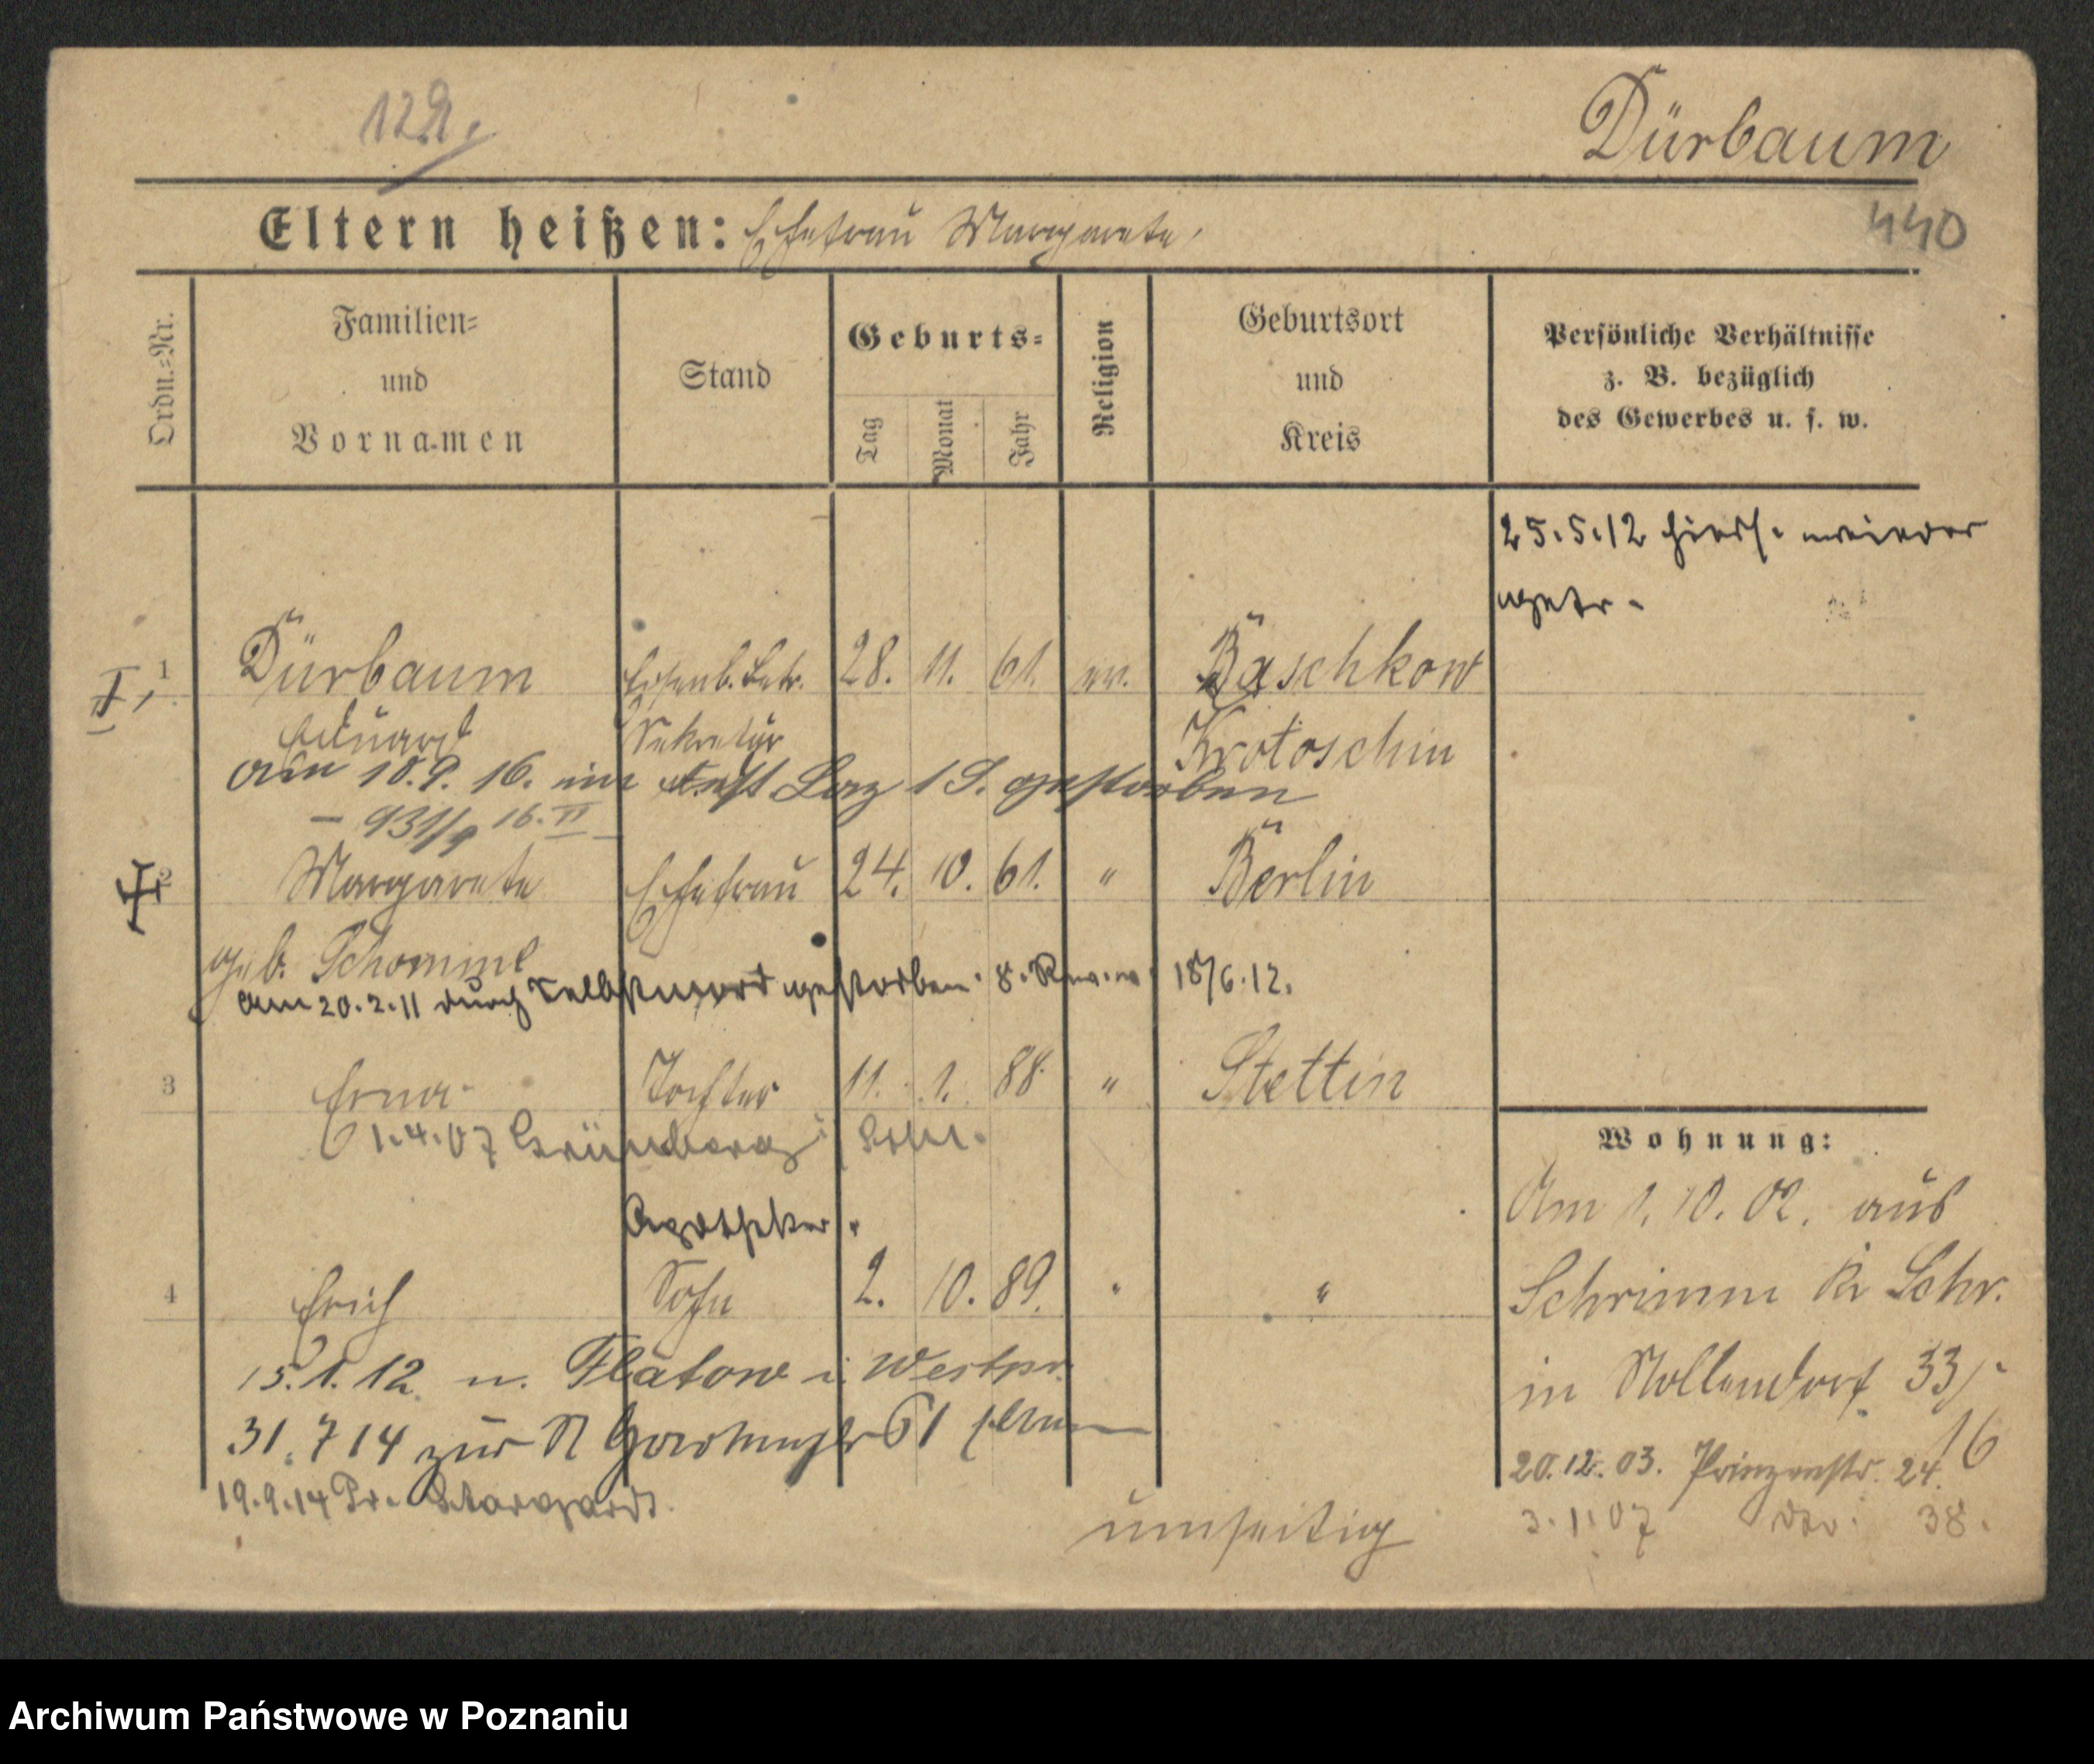 129.
Dürbaum
440
Eltern heißen: Ehefrau Margarete
Ordn.-Nr.
Familien-
und
Vornamen
Stand
Geburts-
Tag
Monat
Jahr
Religion
Geburtsort
und
Kreis
Persönliche Verhältnisse
z. B. bezüglich
des Gewerbes u. s. w.
25.5.12 hiers. wieder
getr.
I, 1 Dürbaum Eisenb. Betr. 28. 11. 61. ev. Baschkow
Eduard Sekretär Krotoschin
am 10.9. 16. im Laz gestorben
- 931/9 16. II
2 Margarete Ehefrau 24. 10. 61. " Berlin
geb. Schomme
am 20.2.11 durch Selbstmord gestorben. 18/6.12.
3 Erna Tochter 11. 1. 88. " Stettin
1.4.07 Grünberg i Schl.
Apotheker.
4 Erich Sohn 2. 10. 89. " "
15.1.12. n. Flatow i. Westpr.
31.7 14 zur
19.9.14 Pr. Stargardt.
umseitig
Wohnung:
Am 1.10.02. aus
Schrimm Kr Schr.
in Nollendorf 33/
16
20.12.03. Prinzenstr. 24.
3.1.07 do. 38.
Archiwum Państwowe w Poznaniu